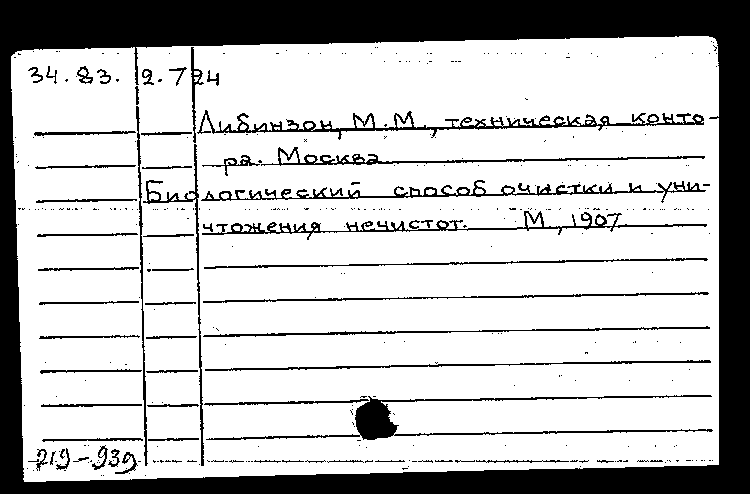 34.83. 2.724
Либинзон, М.М., техническая конто-
ра. Москва
Биологический способ очистки и уни-
чтожения нечистот. М., 1907
219-939